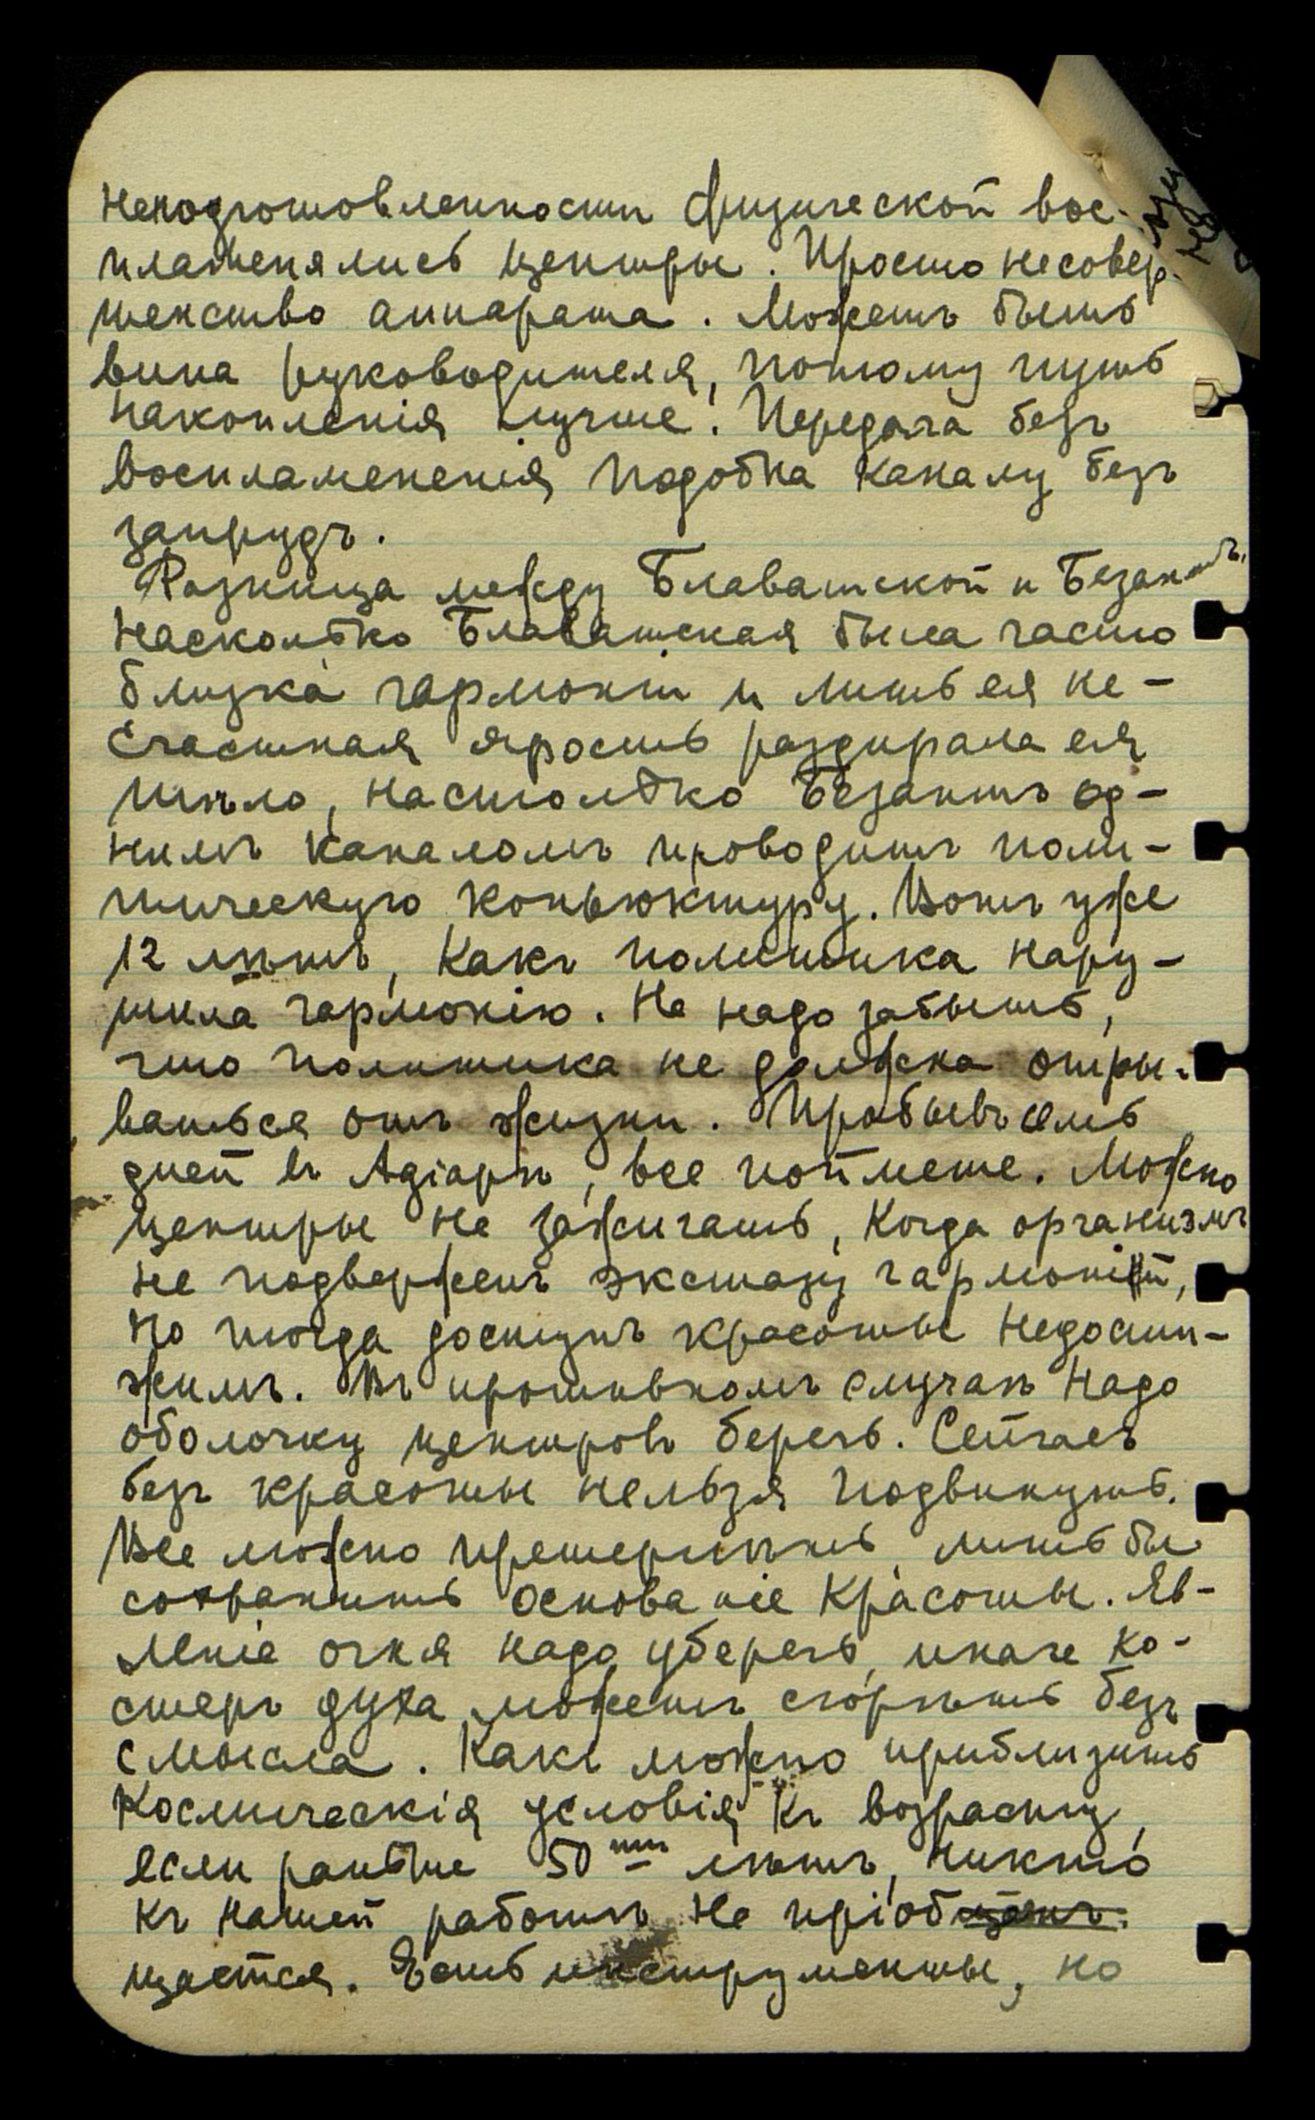 неподготовленности физической вос-
пламенялись центры. Просто несовер-
шенство аппарата. Можетъ быть
вина руководителя, потому путь
накопленія лучше. Передача безъ
воспламененія подобна каналу безъ
запрудъ.
Разница между Блаватской и Безантъ.
Насколько Блаватская была часто
близка гармоніи и лишь ея не-
счастная ярость раздирала ея
тѣло, настолько Безантъ од-
нимъ каналомъ проводитъ поли-
тическую коньюктуру. Вотъ уже
12 лѣтъ, какъ политика нару-
шила гармонію. Не надо забыть,
что политика не должна отры-
ваться отъ жизни. Пробывъ семь
дней въ Адіарѣ, все поймете. Можно
центры не зажигать, когда организмъ
не подверженъ экстазу гармоній,
но тогда доступъ красоты недости-
жимъ. Въ противномъ случаѣ надо
оболочку центровъ беречь. Сейчасъ
безъ красоты нельзя подвинуть.
Все можно претерпѣть, лишь бы
сохранить основаніе Красоты. Яв-
леніе огня надо уберечь, иначе ко-
стеръ духа можетъ сгорѣть безъ
смысла. Какъ можно приблизить
Космическія условія къ возрасту,
если раньше 50ти лѣтъ, никто
къ нашей работѣ не пріобщенъ.
щается. Есть инструменты, но